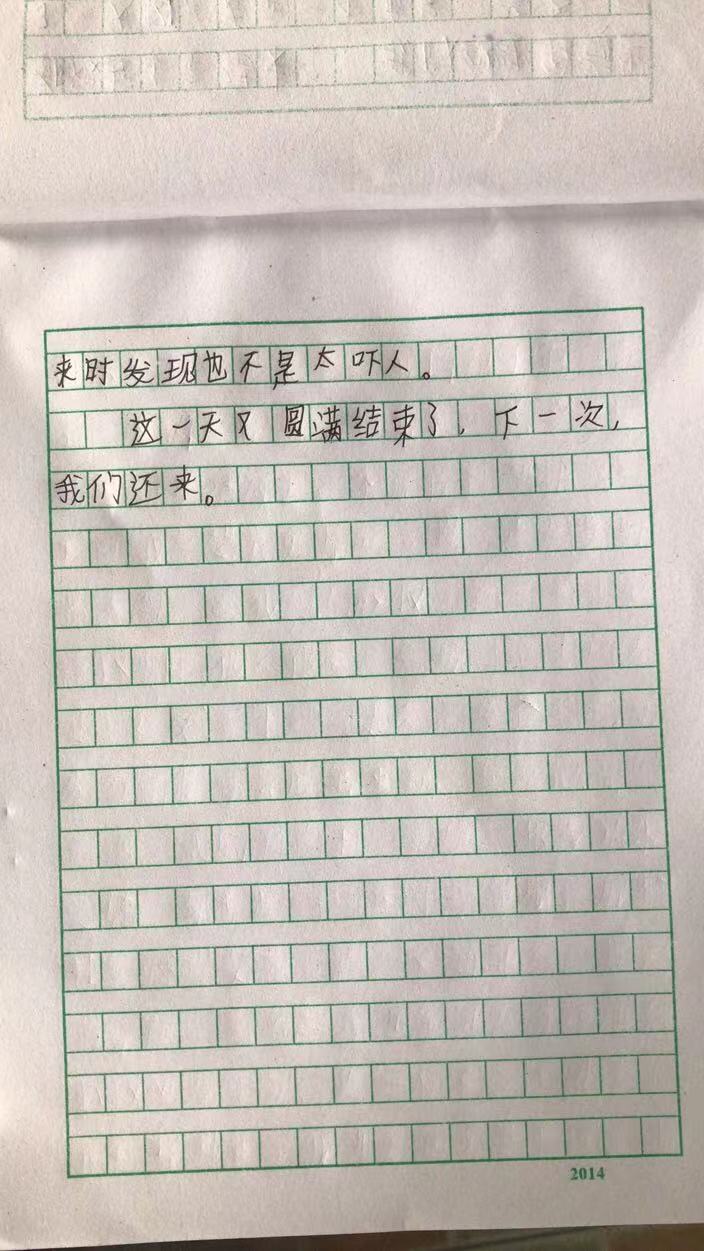 来时发现也不是太吓人。
这一天又圆满结束了，下一次，
我们还来。
2014